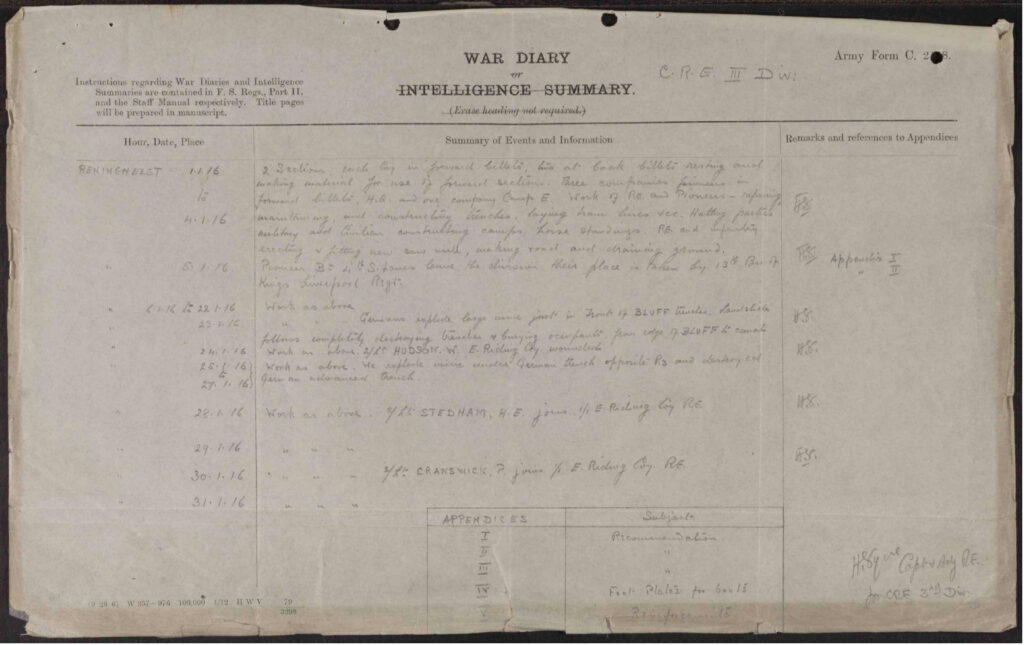 WAR DIARY
or
INTELLIGENCE SUMMARY.
(Erase heading not required.)
Army Form C.
C.R.E. III Div:
Instructions regarding War Diaries and Intelligence
Summaries are contained in F. S. Regs., Part II.
and the Staff Manual respectively. Title pages
will be prepared in manuscript.
Hour, Date, Place
Summary of Events and Information
Remarks and references to Appendices
RENINGHELST 1.1.16
to
4.1.16
2 Sections each Coy in forward billets, two at back billets resting and
making material for use of forward sections. Three companies pioneers in
forward billets, H.Q. and one company Camp E. Work of R.E. and Pioneers - repairing
maintaining, and constructing trenches. Laying tram lines &c. Hutting parties
military and civilian constructing camps, horse standings. R.E. and infantry
erecting & fitting new saw mill, making road, and draining ground.
" 5.1.16 Pioneer Bn 4th S. leave the division their place is taken by 13th Bn of
Kings Liverpool Regt.
Appendix I
" II
" to 22.1.16 Work as above
" 23.1.16 " " " Germans explode large mine just in front of BLUFF trenches. Landslide
follows completely destroying trenches & burying occupants from edge of BLUFF to canal.
" 24.1.16 Work as above. 2/Lt HUDSON. W. E. Riding Coy wounded.
" 25.1.16 Work as above. We explode mine under German trench opposite and destroyed
to
27.1.16 German advanced trench.
" 28.1.16 Work as above. 2/Lt STEDHAM, H.E. joins 1/1 E. Riding Coy RE.
" 29.1.16 " " "
" 30.1.16 " " " 2/Lt CRANSWICK, P. joins 1/1 E. Riding Coy. RE.
" 31.1.16 " " "
APPENDICES Subject
I Recommendation
II "
III "
IV Foot Plates for
V
Capt & Adj R.E.
for CRE 3rd Div.
(9 29 6) W 257—976 100,000 1/12 H W V 79
3298